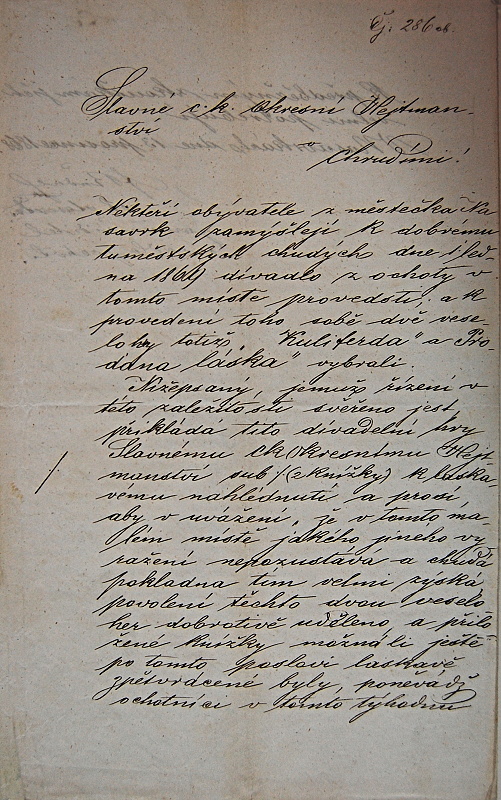 Čj. 286
Slavné c. k. Okresní Hejtman-
ství
v
Chrudimi!
Někteří obývatele z městečka Na
savrk zamyšlejí k dobremu
tuměstských chudých dne 1 led-
na 1869 divadlo z ochoty v
tomto místě provedsti, a k
provedení toho sobě dvě vese-
lohry totiž „Kuliferda" a „Pro-
daná láska" vybrali.
Nižepsaný, jemuž řízení v
této zaležitosti svěřeno jest
přikládá tito divadelní hry
Slavnému ck okresnímu Hejt
manství sub ·/· (2 knížky) k laska-
vému nahlednutí a prosí
aby v uvážení, že v tomto ma-
lém místě jakého jineho vy
ražení nepozustává a chudá
pokladna tim velmi zyská,
povolení těchto dvou veselo-
her dobrotivě uděleno a přilo-
žené knížky možnáli ještě
po tomto poslovi laskavě
zpětvrácené byly, poněvádž
ochotníci v tomto týhodnu